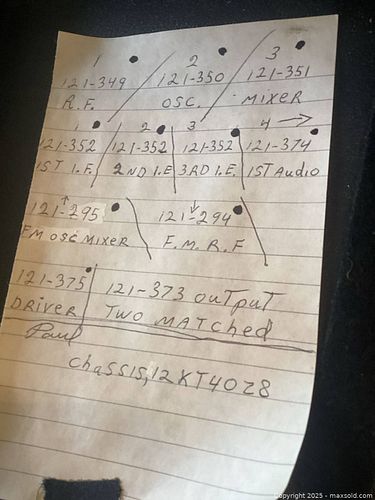 1 2 3
121-349 / 121-350 / 121-351
R.F. OSC. MIXER
1 2 3 4 →
121-352 / 121-352 | 121-352 | 121-374
1ST I.F. 2ND I.F 3RD I.F. 1ST Audio
121-295 121-294
FM OSC MIXER F.M.R.F
121-375 121-373 OUTPUT
DRIVER TWO MATCHED
Paul
Chassis, 12XT40Z8
Copyright 2025 - maxsold.com